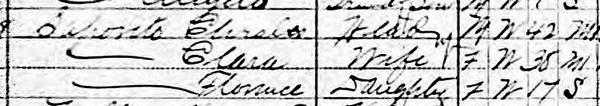 Esposito Head M W 42 M
Clara Wife F W 38 M
Florence Daughter F W 17 S